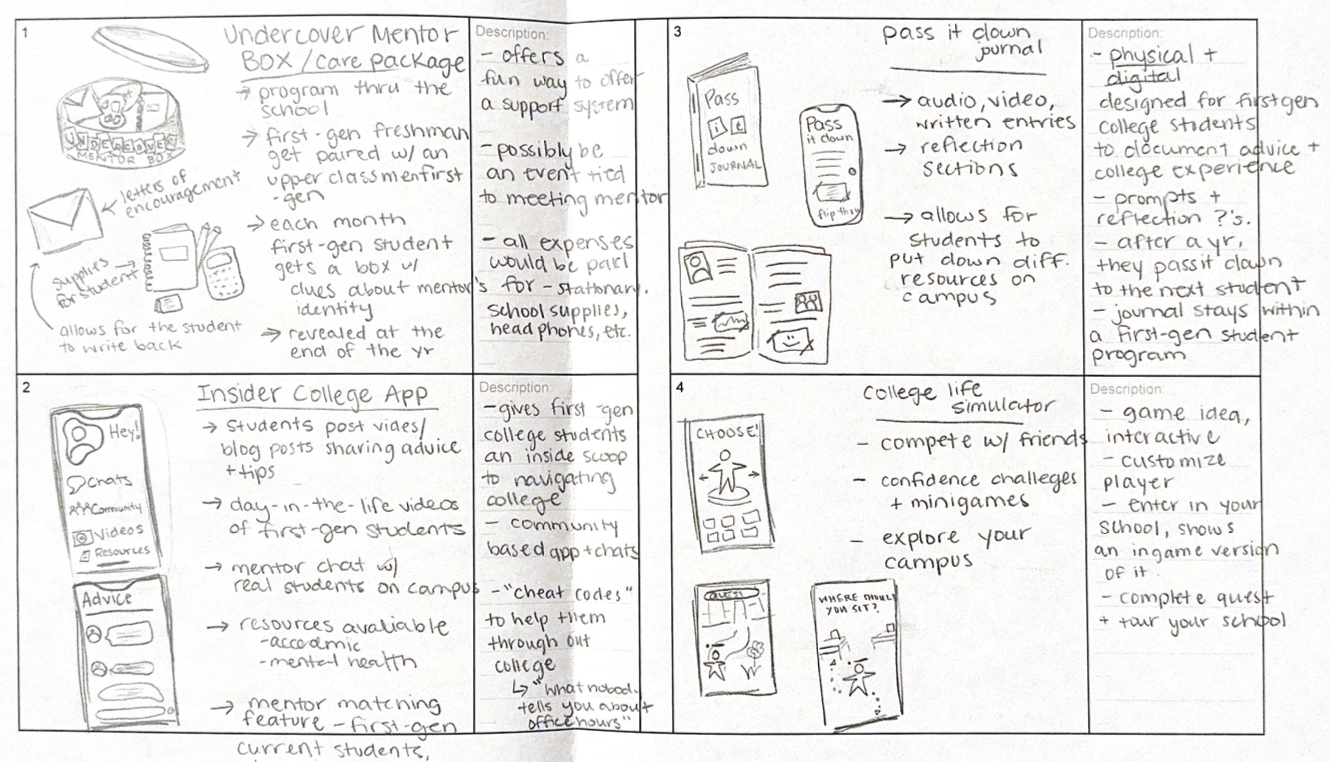 1
Undercover Mentor
BOX / care package
→ program thru the
school
→ first-gen freshman
get paired w/ an
upper classmen first
-gen
→ each month
first-gen student
gets a box w/
clues about mentor's
identity
→ revealed at the
end of the yr
UNDERCOVER
MENTOR BOX
letters of
encouragement
supplies
for student
allows for the student
to write back
Description:
- offers a
fun way to offer
a support system
- possibly be
an event tied
to meeting mentor
- all expenses
would be part
for - stationary,
school supplies,
headphones, etc.
2
Insider College App
→ students post vides/
blog posts sharing advice
+ tips
→ day-in-the-life videos
of first-gen students
→ mentor chat w/
real students on campus
→ resources avaliable
- accademic
- mental health
→ mentor matching
feature - first-gen
current students,
Hey!
Chats
Community
Videos
Resources
Advice
Description:
- gives first-gen
college students
an inside scoop
to navigating
college
- community
based app + chats
- "cheat codes"
to help them
through out
college
↳ "what nobod.
tells you about
office hours"
3
pass it down
journal
→ audio, video,
written entries
→ reflection
sections
→ allows for
students to
put down diff.
resources on
campus
Pass
it
down
JOURNAL
Pass
it down
flip thru
Description:
- physical +
digital
designed for first gen
college students
to document advice +
college experience
- prompts +
reflection ?'s.
- after a yr,
they pass it down
to the next student
- journal stays within
a first-gen student
program
4
college life
simulator
- compete w/ friends
- confidence challeges
+ minigames
- explore your
campus
CHOOSE!
QUEST
WHERE SHOULD
YOU SIT?
Description:
- game idea,
interactive
- customize
player
- enter in your
school, shows
an ingame version
of it.
- complete quest
+ tour your school